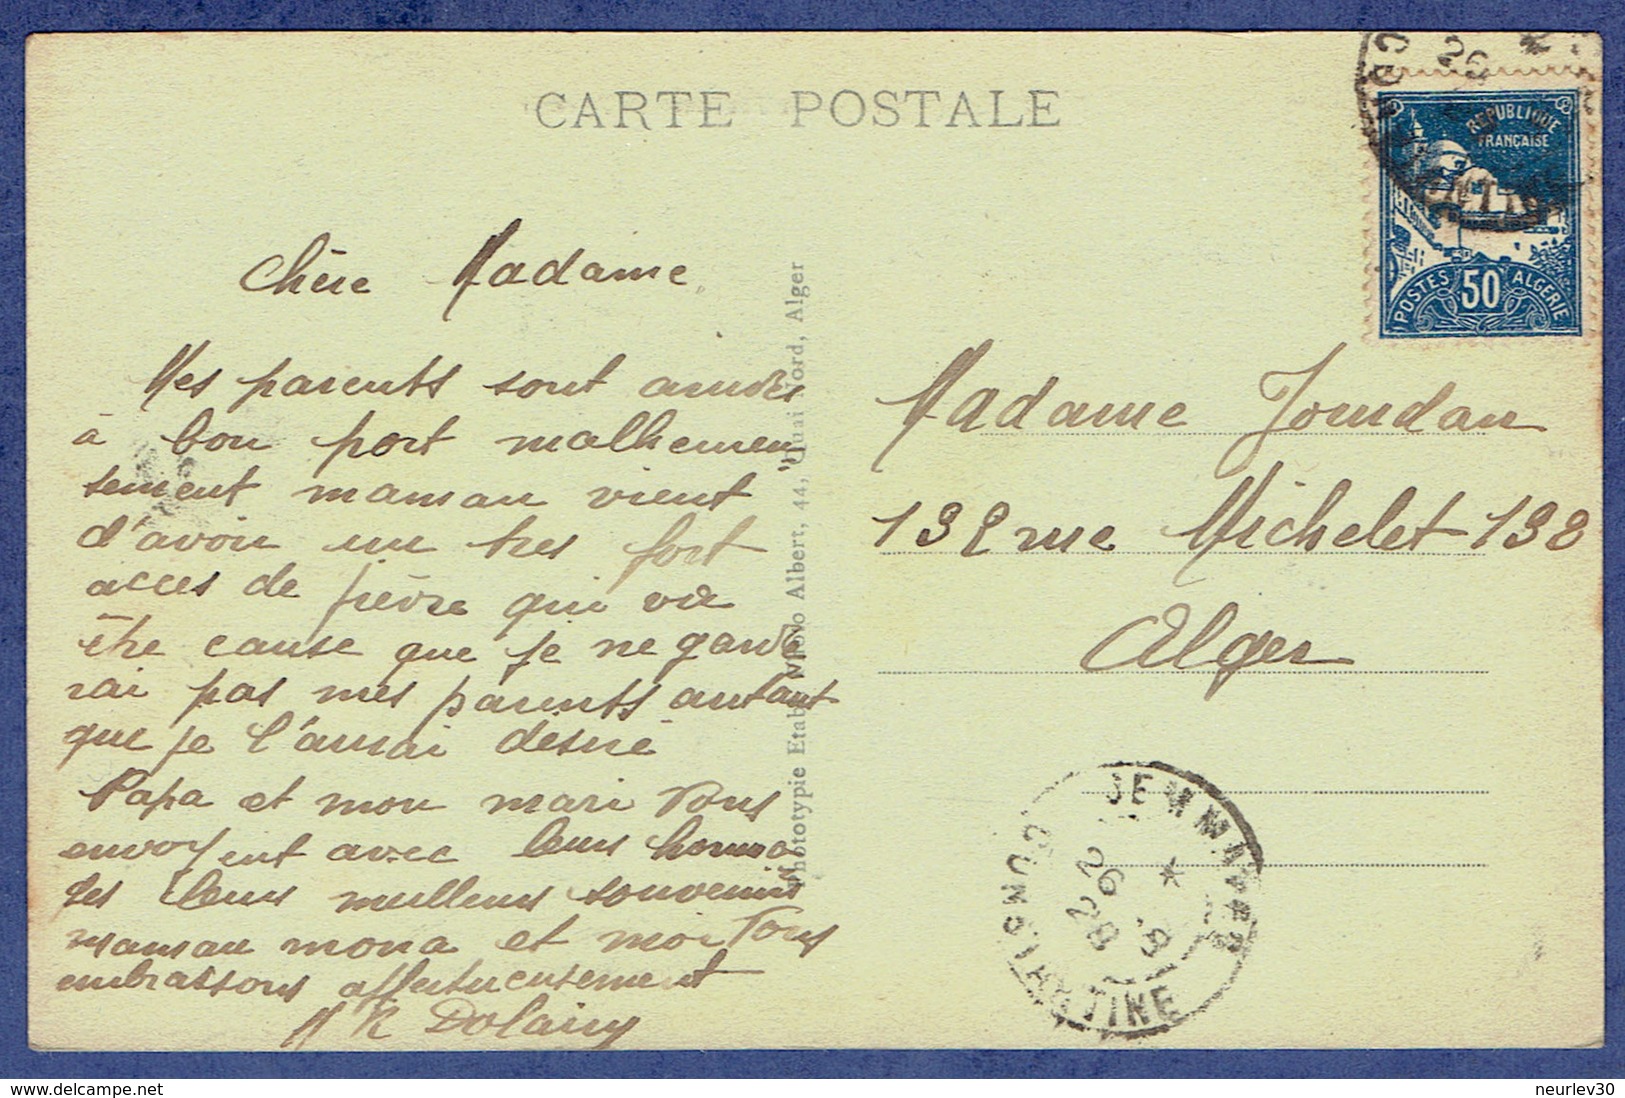 CARTE POSTALE
REPUBLIQUE
FRANÇAISE
POSTES 50 ALGERIE
Chère Madame
Mes parents sont arrivés
à bon port malheureu
sement maman vient
d'avoir un tres fort
acces de fièvre qui va
être cause que je ne garde
rai pas mes parents autant
que je l'aurai désiré
Papa et mon mari vous
envoyent avec leurs homma
ges leurs meilleurs souvenirs
maman mona et moi vous
embrassons affectueusement
Dolainy
Phototypie Etabs Photo Albert, 44, Quai Nord, Alger
Madame Jourdan
138 rue Michelet 138
Alger
JEMMAPES
CONSTANTINE
delcampe.net
neurlev30